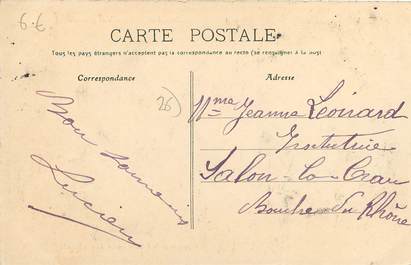 6.E
CARTE POSTALE
Tous les pays étrangers n'acceptent pas la correspondance au recto (se renseigner à la poste)
Correspondance
Adresse
26
Bon souvenir
Lucien
Mme Jeanne Léonard
Institutrice
Salon-la-Crau
Bouche du Rhône